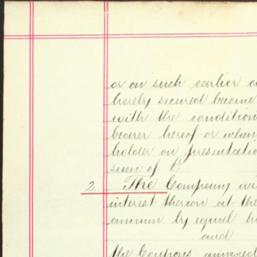 or on such earlier
hereby secured become
with the condition
bearer hereof or when
holder on presentatio
sum of £
2 The Company wi
interest thereon at the
annum by equal ha
and
the Coupons annexed